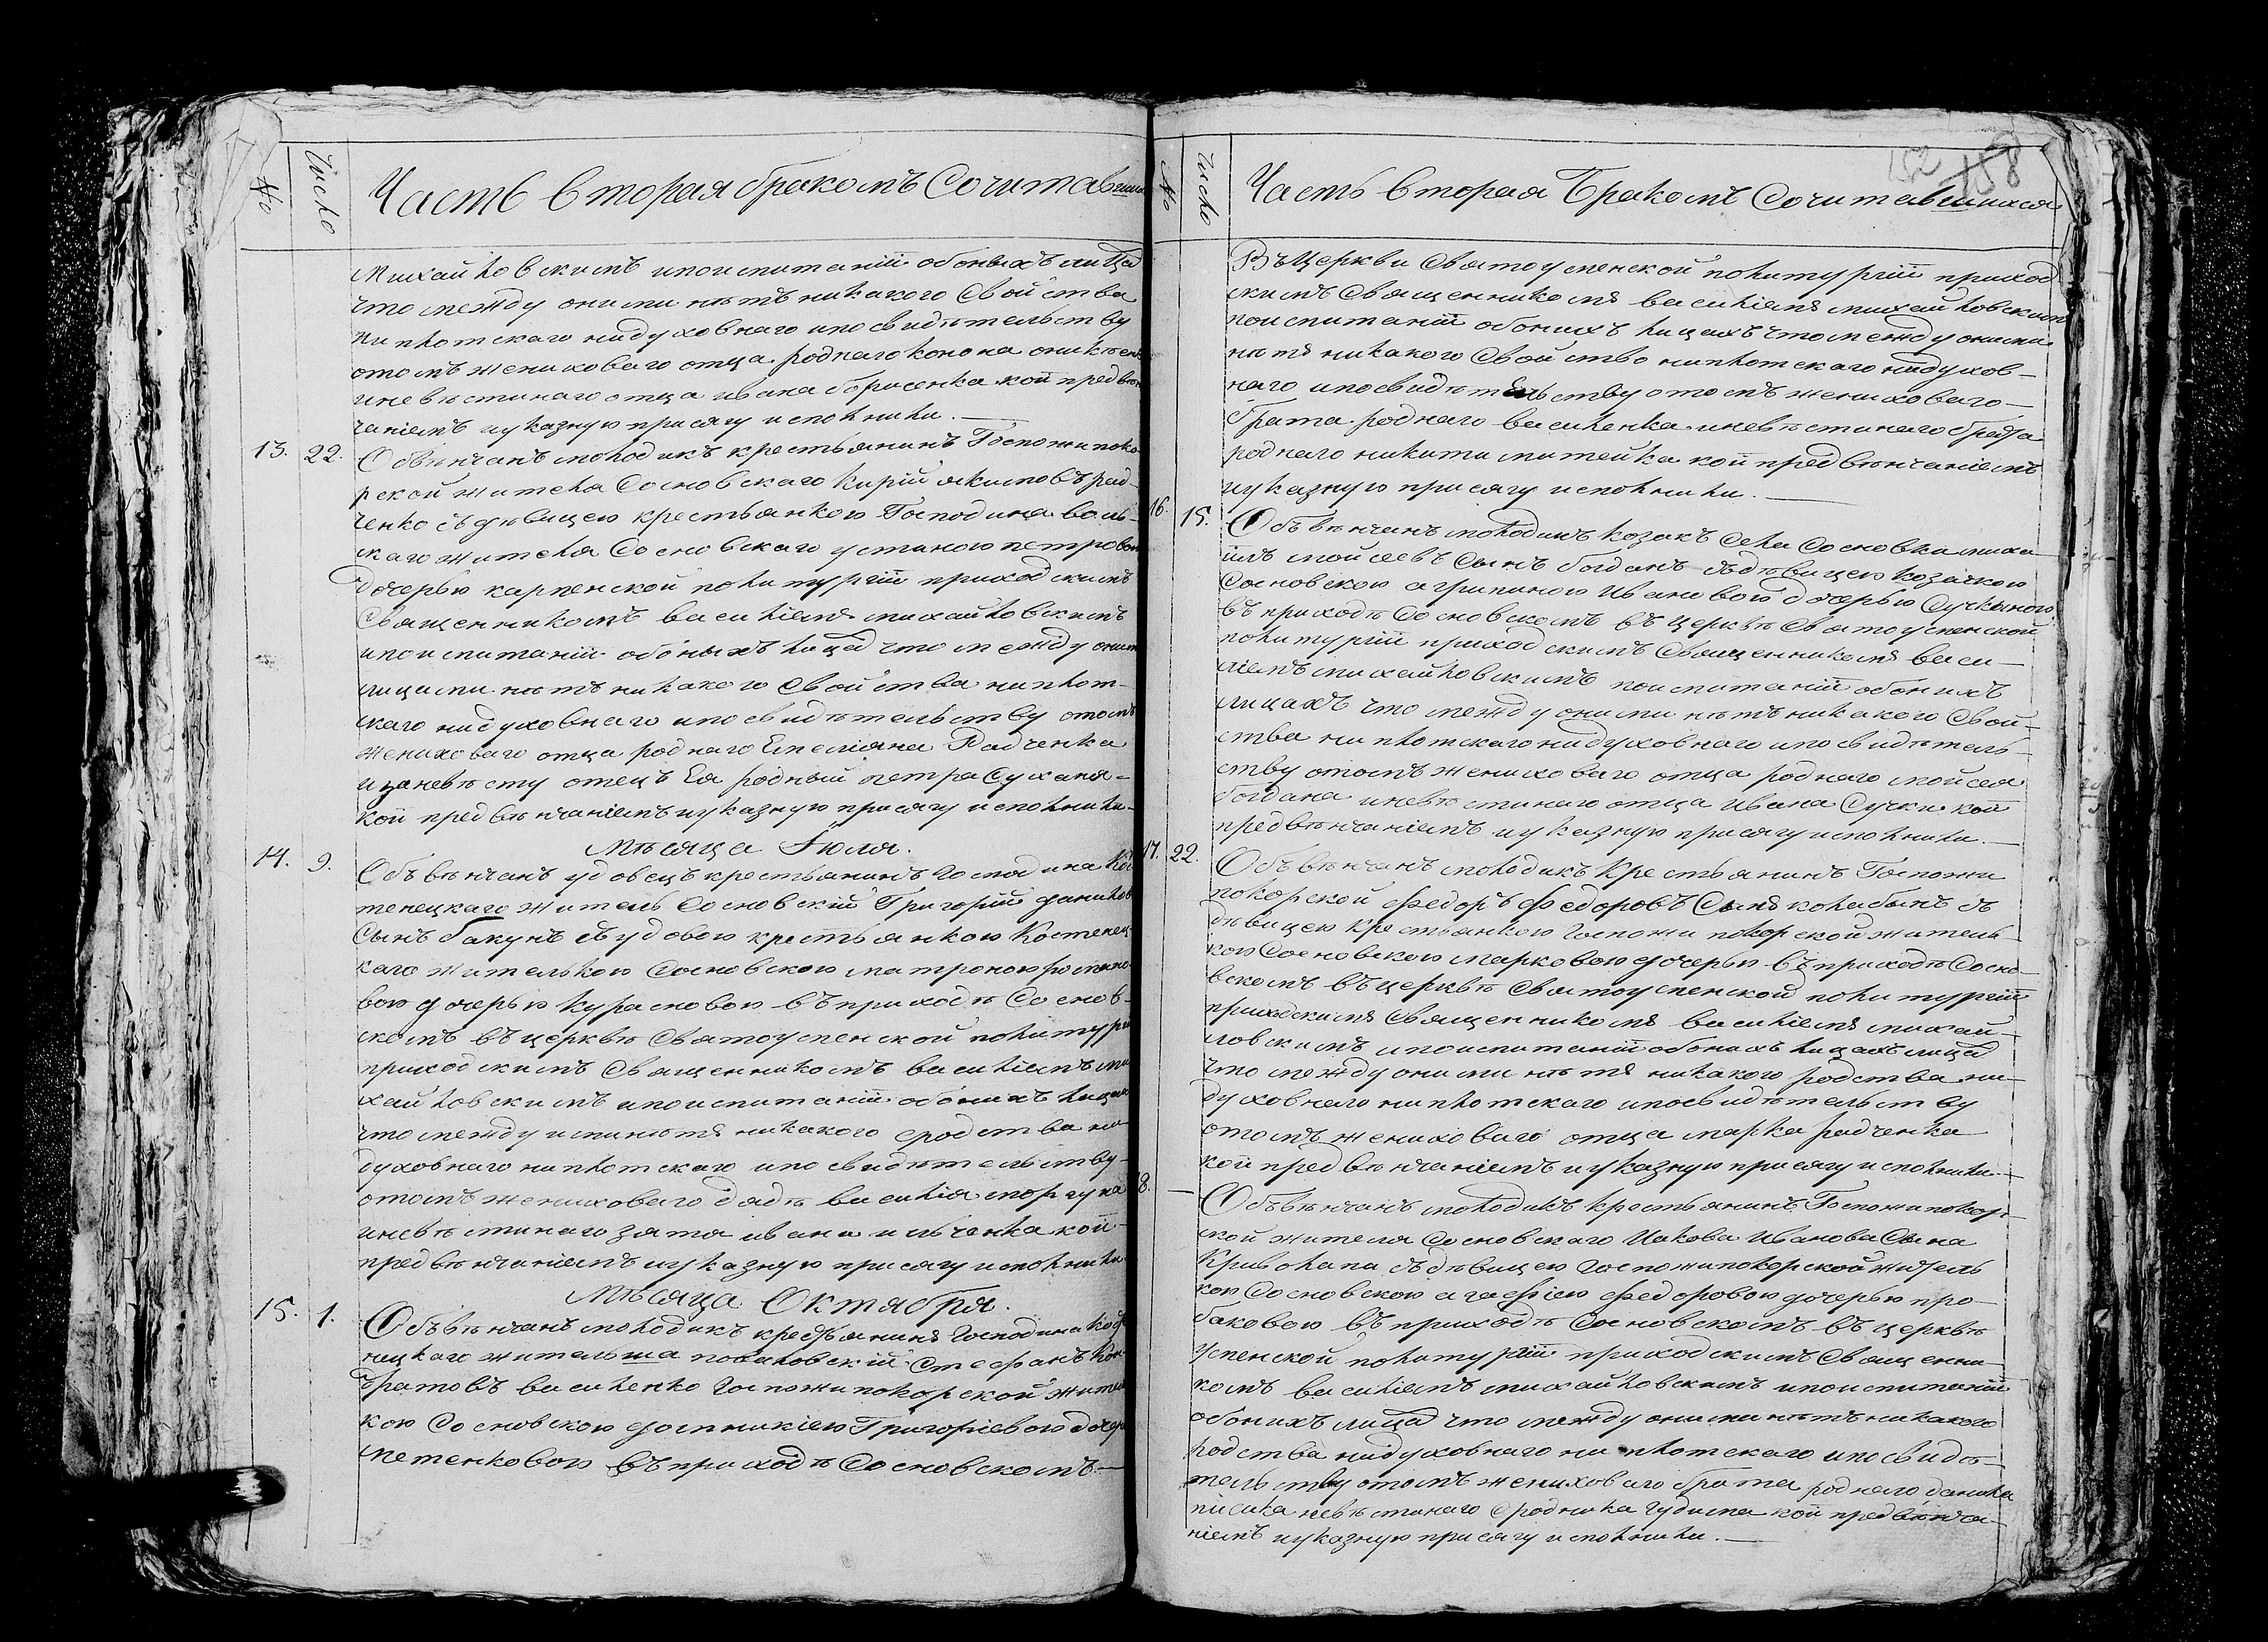 №
Число
Часть вторая бракомъ Сочитавши
Михайловскимъ ипоиспитаніи обоныхъ лицъ
что между оними нѣтъ никакого Свойства
ни плотскаго нидуховнаго ипосвидѣтельству
отомъ жениховаго отца роднаго конона
иневѣстинаго отца ивана борисенка кои предвѣн
чаніемъ иуказную присягу исполнили.
13. 22. Обвѣнчанъ молодикъ крестьянинъ Госпожи поко
рской жителя Сосновскаго Кирій якимовъ рад-
ченко съ дѣвицею крестьянкою Господина воль-
скаго жителя Сосновскаго устиною петровою
дочерью карпенской политургіи приходскимъ
Священникомъ василіемъ михайловскимъ
ипоиспитаніи обоныхъ лицъ что между оними
лицами нѣтъ никакого Свойства ниплот-
скаго нидуховнаго ипосвидѣтельству отомъ
жениховаго отца роднаго Емеліяна Радченка
изаневѣсту отецъ Ея родный петра Суханя-
кои предвѣнчаніемъ иуказную присягу исполнили-
Мѣсяца Іюля.
14. 9. Обвѣнчанъ удовецъ крестьянинъ Господина Ко
тенецкаго житель Сосновскій Григорій данилов
Сынъ бакунъ съ удовою крестьянкою Костенец
каго жителькою Сосновскою матроною романо
вою дочерью Курасновою въ приходѣ Соснов-
скомъ въ церквѣ Святоуспенской политургіи
приходскимъ Священникомъ василіемъ ми
хайловскимъ ипоиспитаніи обоныхъ лицахъ
что между ими нѣтъ никакого сродства ни
духовнаго ниплотскаго ипосвидѣтельству-
отомъ жениховаго дядѣ василія моргуна
иневѣстинаго зятя ивана ильченка кои-
предвѣнчаніемъ иуказную присягу исполнили
Мѣсяца Октября.
15. 1. Обвѣнчанъ молодикъ крестьянинъ Господина
ницкаго жительша половскій Стефанъ Кон
дратовъ василенко Госпожи покорской жител
кою Сосновскою домникіею Григоріевою дочер
метенковою въ приходѣ Сосновскомъ-
№
Число
Часть вторая Бракомъ Сочитавшихся
152 158
Въ Церкви Святоуспенской политургіи приход
скимъ Священникомъ василіемъ михайловскимъ
поиспитаніи обонихъ лицахъ что между оними
нѣтъ никакого Свойство ниплотскаго нидухов-
наго ипосвидѣтельству отомъ жениховаго-
брата роднаго василенка иневѣстинаго брата
роднаго никити митейка кои предвѣнчаніемъ
иуказную присягу исполнили.
16. 15. Обвѣнчанъ молодикъ козакъ Села Сосновки миха
илъ мойсеевъ Сынъ богданъ съ дѣвицею козачкою
Сосновскою агрипиною Ивановою дочерью Сучкиною
въ приходѣ Сосновскомъ въ церквѣ Святоуспенской
политургіи приходскимъ Священникомъ васи-
ліемъ михайловскимъ поиспитаніи обонихъ
лицахъ что между оними нѣтъ никакого Свой-
ства ни плотскаго нидуховнаго ипосвидѣтель-
ству отомъ жениховаго отца роднаго мойсея
богдана иневѣстинаго отца ивана Сучки кои
предвѣнчаніемъ иуказную присягу исполнили.
17. 22. Обвѣнчанъ молодикъ Крестьянинъ Госпожи
покорской федоръ федоровъ Сынъ колибынъ съ
дѣвицею крестьянкою Госпожи покорской житель
кою Сосновскою Марковою дочерью въ приходѣ Сосно-
вскомъ въ церквѣ Святоуспенской политургіи
приходскимъ Священникомъ василіемъ михай-
ловскимъ ипоиспитаніи обонихъ лицахъ лицъ
что между оними нѣтъ никакого родства ни-
духовнаго ниплотскаго ипосвидѣтельству
отомъ жениховаго отца марка радченка
кои предвѣнчаніемъ иуказную присягу исполнили.-
18. - Обвѣнчанъ молодикъ крестьянинъ Госпожи покор-
ской жителя Сосновскаго Иакова Иванова Сына
Криволапа съ дѣвицею Госпожи покорской житель
кою Сосновскою агафіею федоровою дочерью про-
баковою въ приходѣ Сосновскомъ въ церквѣ
Успенской политургіи приходскимъ Священни-
комъ василіемъ михайловскимъ ипоиспитаніи
обонихъ лицъ что между оними нѣтъ никакого
родства нидуховнаго ни плотскаго ипосвидѣ-
тельству отомъ жениховаго брата роднаго данила
невѣстинаго сродника гудима кои предвѣнча-
ніемъ иуказную присягу исполнили.-